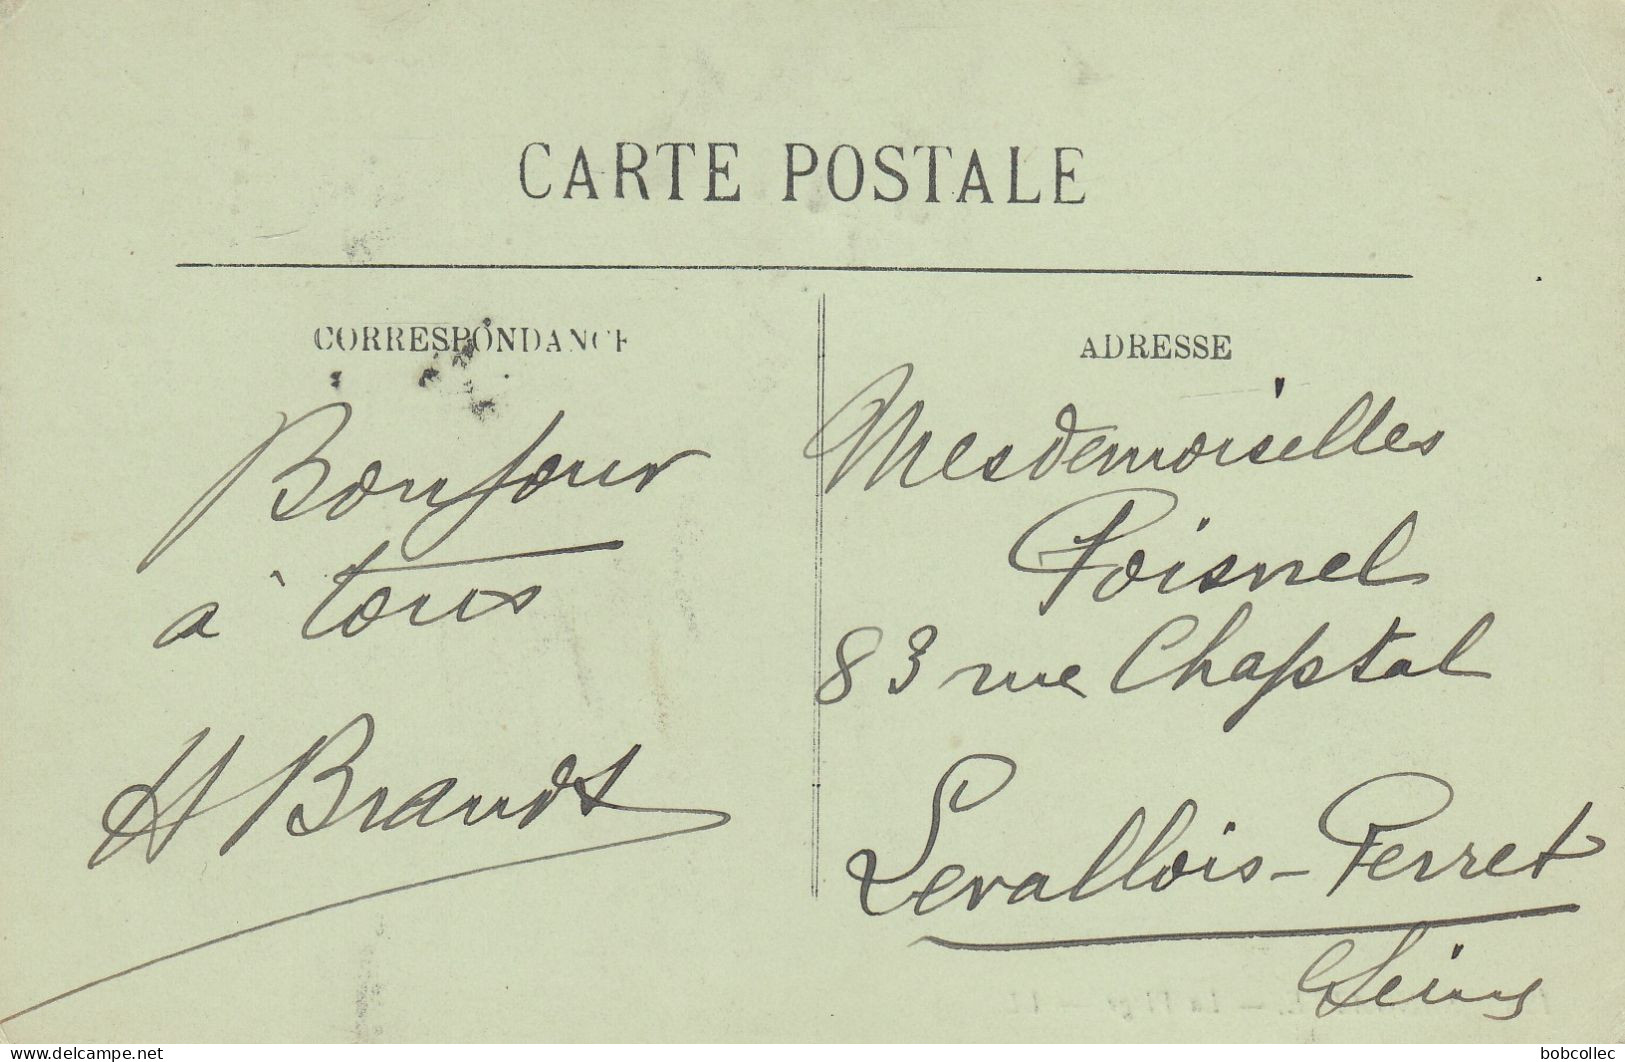 CARTE POSTALE
CORRESPONDANCE
Bonjour
à tous
H Brandt
ADRESSE
Mesdemoiselles
Poisnel
83 rue Chaptal
Levallois-Perret
Seine
delcampe.net
bobcollec